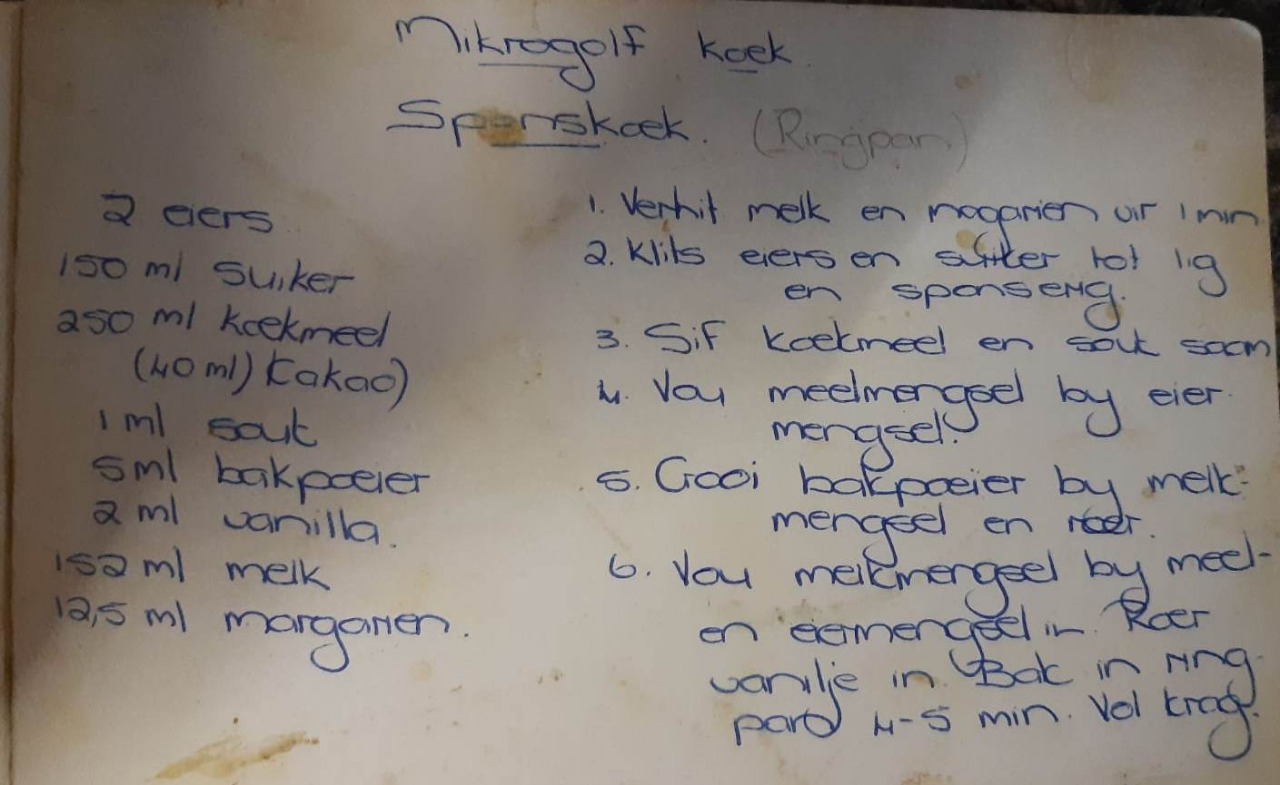 Mikrogolf koek
Sponskoek. (Ringpan)
2 eiers
150 ml suiker
250 ml koekmeel
(40 ml) kakao)
1 ml sout
5 ml bakpoeier
2 ml vanilla.
152 ml melk
12,5 ml margarien.
1. Verhit melk en magarien vir 1 min
2. Klits eiers en suiker tot lig
en sponserig.
3. Sif koekmeel en sout saam
4. Vou meelmengsel by eier
mengsel.
5. Gooi bakpoeier by melk-
mengsel en roer.
6. Vou melkmengsel by meel-
en eiermengsel in. Roer
vanilje in. Bak in ring
4-5 min. Vol krag.